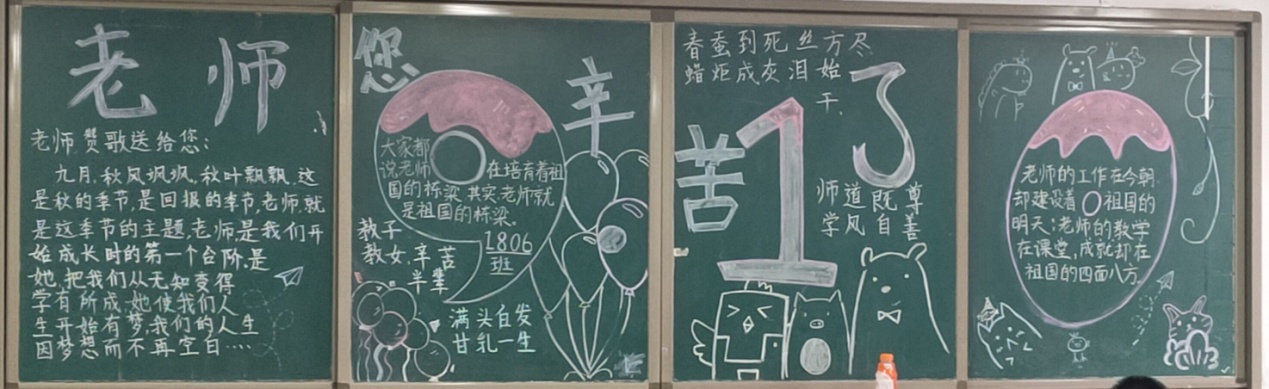 老师
老师赞歌送给您:
九月,秋风飒飒,秋叶飘飘.这
是秋的季节,是回报的季节,老师,就
是这季节的主题,老师,是我们开
始成长时的第一个台阶,是
她,把我们从无知变得
学有所成,她使我们人
生开始有梦,我们的人生
因梦想而不再空白····
您
辛
9
大家都
说老师在培育着祖
国的桥梁,其实,老师就
是祖国的桥梁。
1806
班
教子
教女,辛苦
半辈
满头白发
甘乳一生
春蚕到死丝方尽
蜡炬成灰泪始
干.
苦
1
了
师道既尊
学风自善
0
老师的工作在今朝,
却建设着祖国的
明天;老师的教学
在课堂,成就却在
祖国的四面八方。